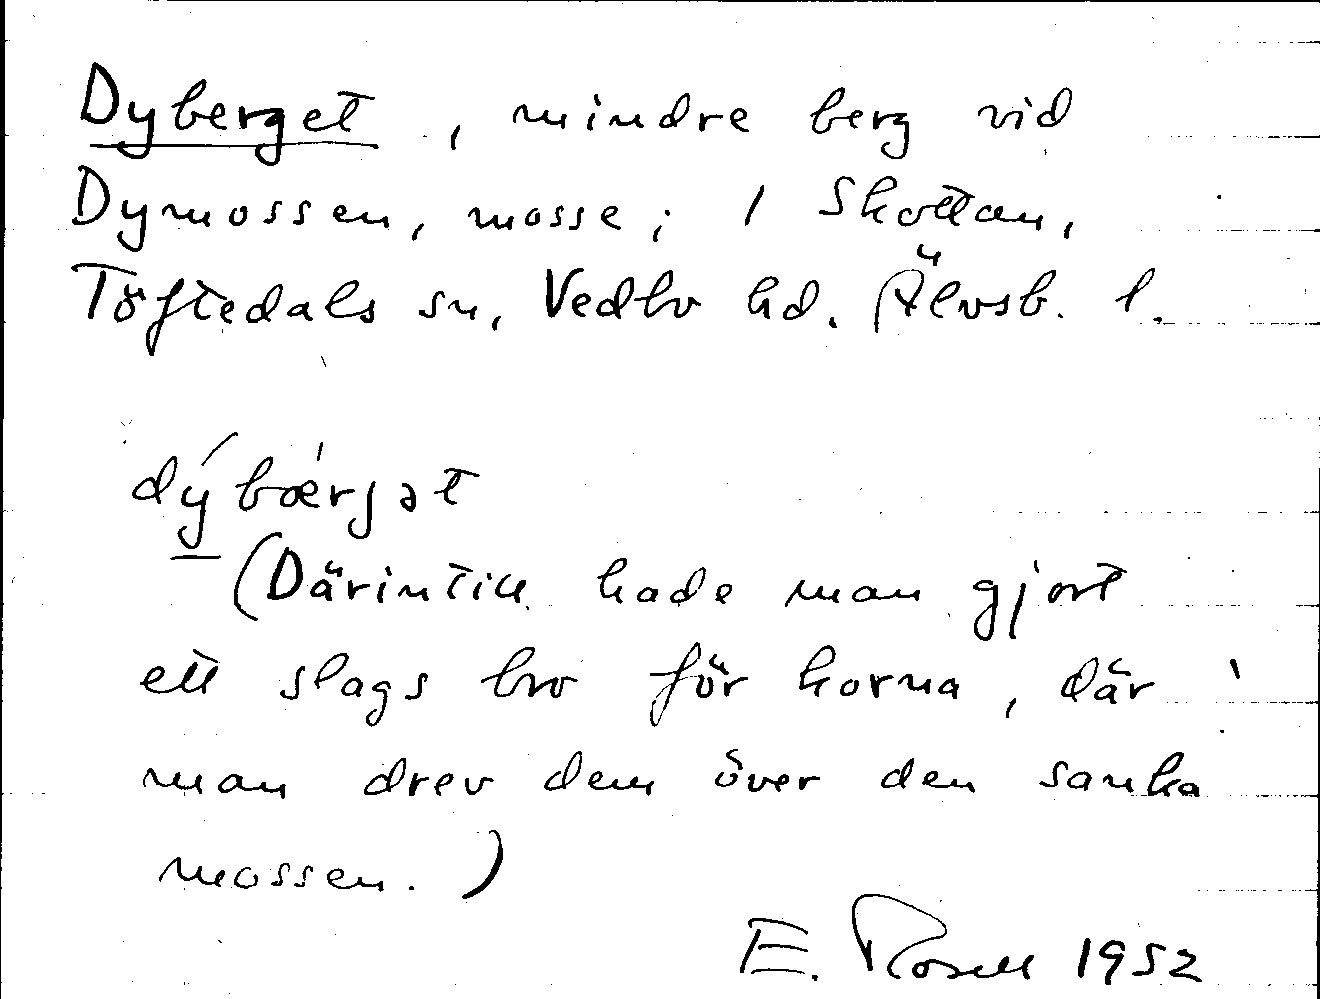 Dyberget, mindre berg vid
Dymossen, mosse; 1 Skottan,
Töftedals sn, Vedbo hd. Älvsb. l.
dýbæ̀rjət
(Därintill hade man gjort
ett slags bro för korna, där
man drev dem över den sanka
mossen.)
E. Rosell 1952